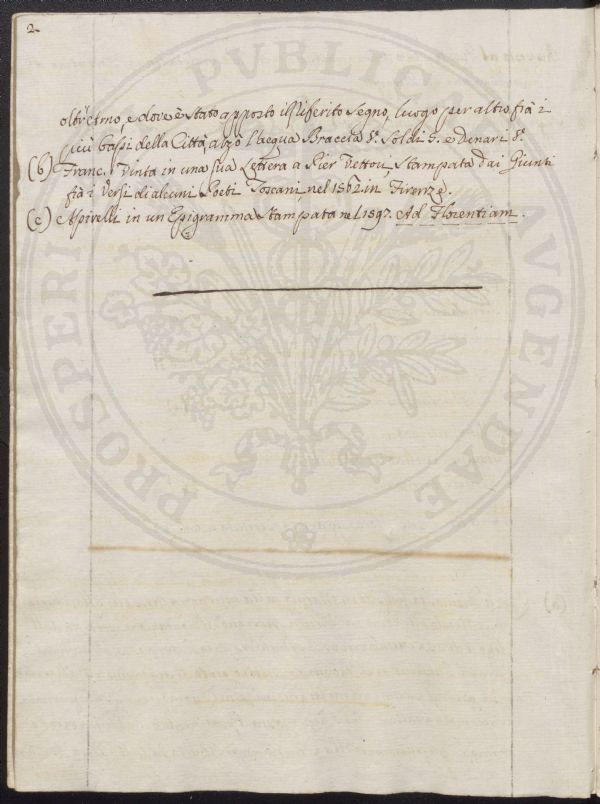 2
oltr'Arno, e dove è stato apposto il riferito segno, luogo per altro frà i
più bassi della Città, alzò l'acqua Braccia 8. soldi 5. e denari 8.
(b) Franc. Vinta in una sua Lettera a Pier Vettori, stampata dai Giunti
frà i Versi di alcuni Poeti Toscani, nel 1562 in Firenze.
(c) in un Epigramma stampato nel 1597. Ad Florentiam.
PUBLICAE PROSPERITATI AUGENDAE